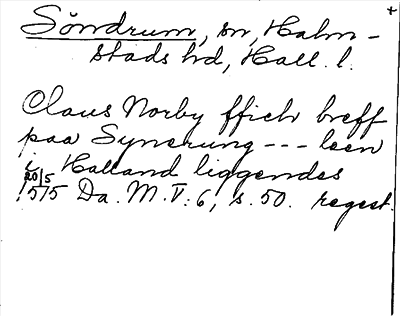 Söndrum, sn, Halm-
stads hd, Hall. l.
Claus Norby ffich breff
paa Synerung --- leen
i Halland liggendes
20/5 1515 Da. M. V: 6, s. 50. regest.